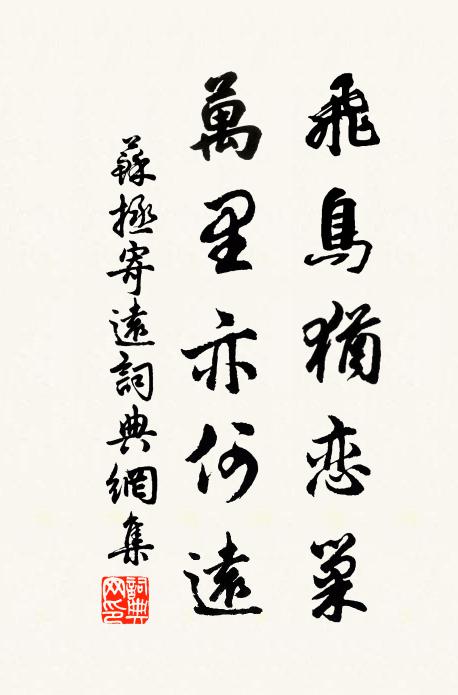 飛鳥猶恋巢
萬里亦何遠
蘇拯寄遠詞典網集
詞典網印